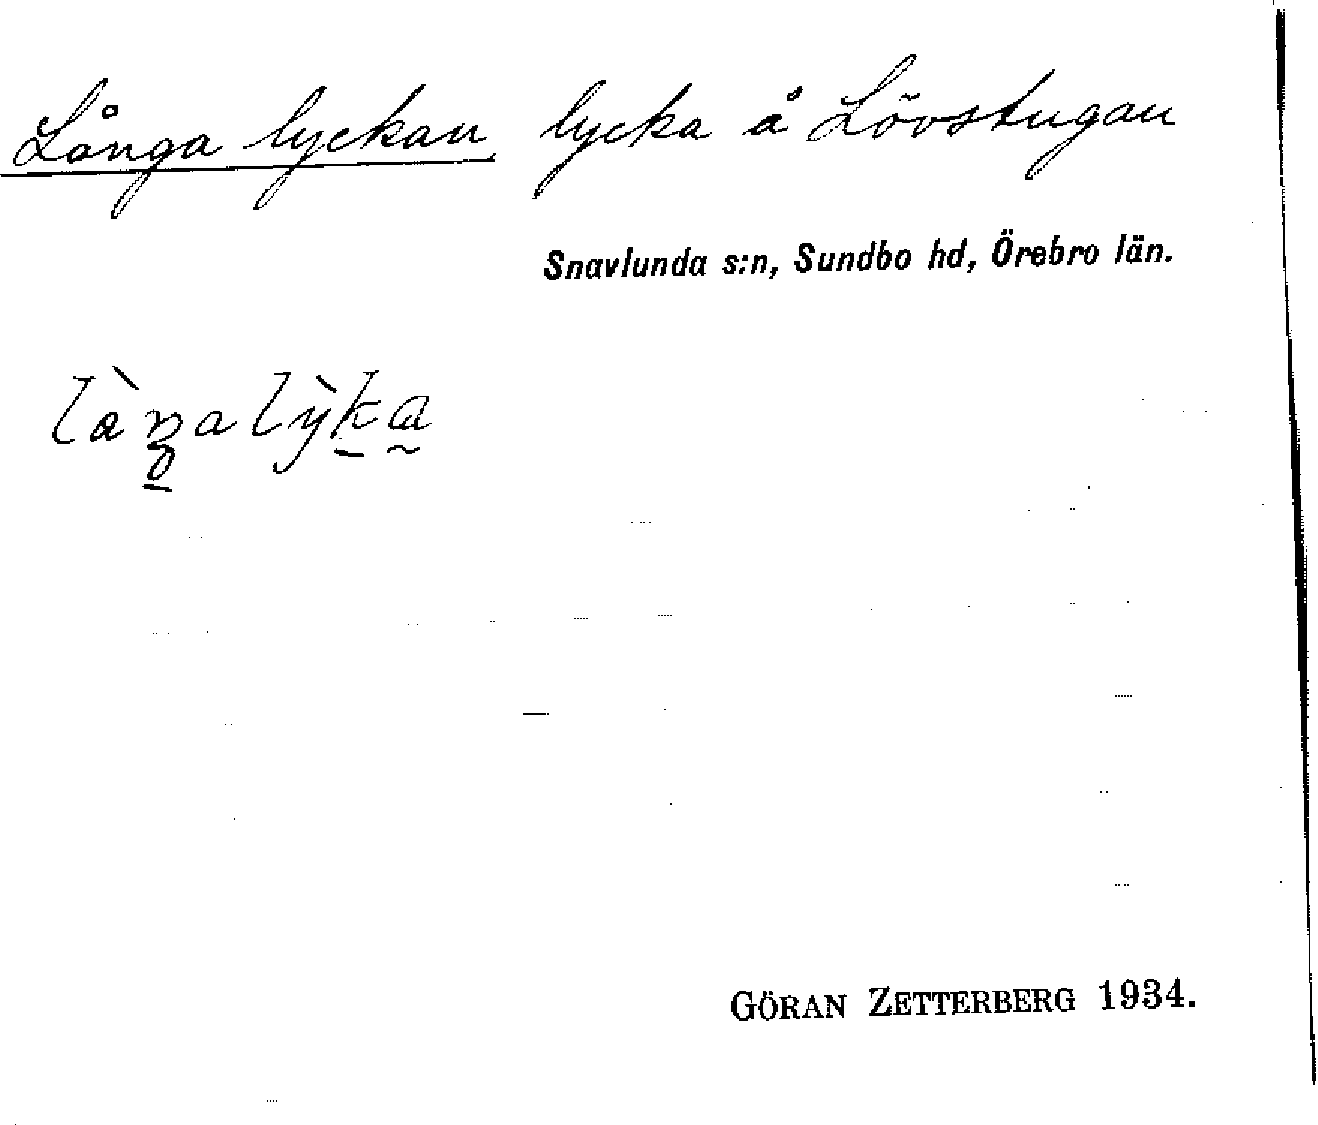 Långa lyckan lycka å Lövstugan
Snavlunda s:n, Sundbo hd, Örebro län.
GÖRAN ZETTERBERG 1934.